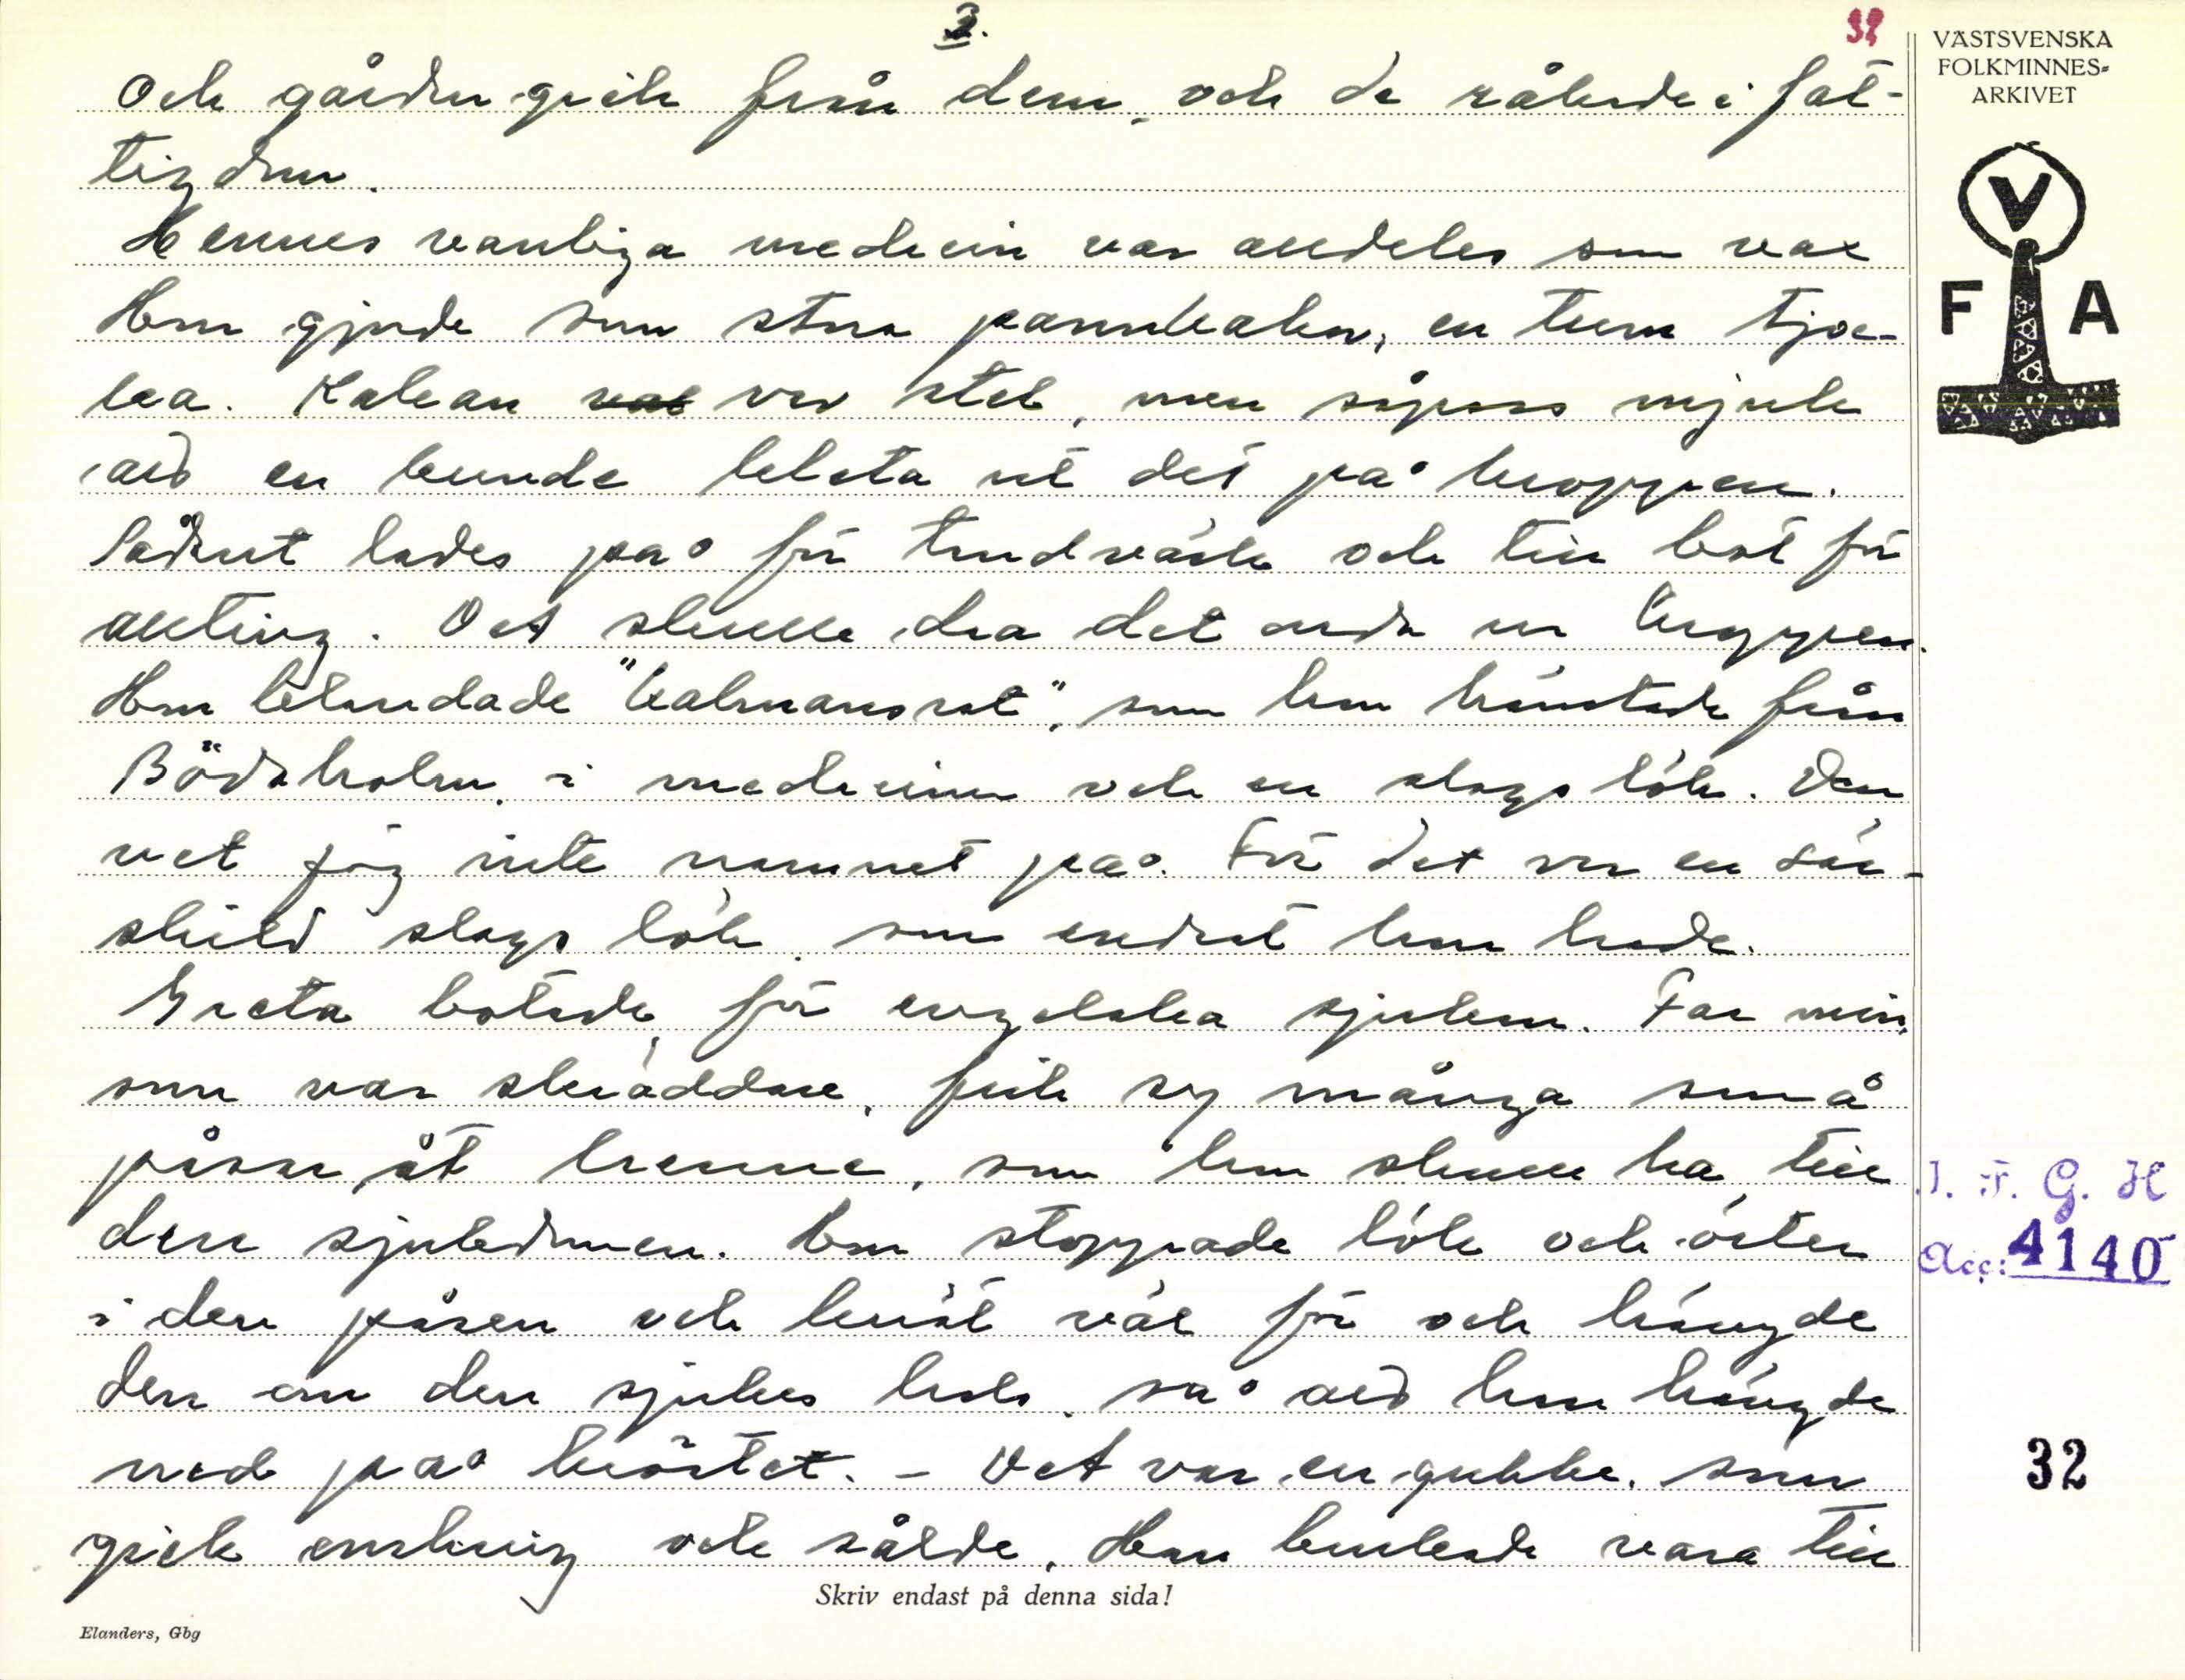 3.
32
Och gården gick från dem, och de råkade i fat-
tigdom.
Hennes vanliga medicin var alldeles som vax
Hon gjorde som stora pannkakor, en tum tjoc-
ka. Kakan var var stel, men såpass mjuk
att en kunde kleta ut det på kroppen.
Sådant lades på för tandvärk och till bot för
allting. Det skulle dra det onda ur kroppen.
Hon blandade "kalmansrot", som hon hämtade från
Bödsholm, i medicinen och en slags lök. Den
vet jag inte namnet på. För det var en sär-
skild slags lök som endast hon hade.
Greta botade för engelska sjukan. Far min,
som var skräddare, fick sy många små
påsar åt henne, som hon skulle ha till
den sjukdomen. Hon stoppade lök och örter
i den påsen och knöt väl för och hängde
den om den sjukes hals, så att hon hängde
ned på bröstet. - Det var en gubbe, som
gick omkring och sålde. Han brukade vara till
Skriv endast på denna sida!
Elanders, Gbg
VÄSTSVENSKA
FOLKMINNES-
ARKIVET
V
F A
I. F. G. H
Acc: 4140
32